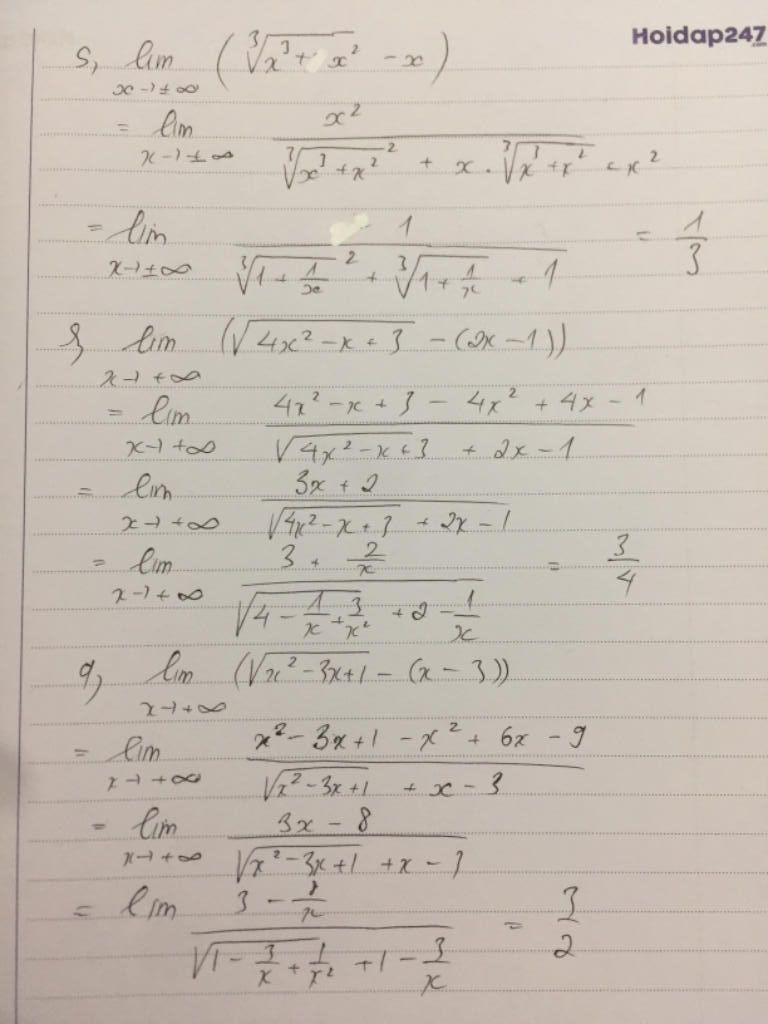 Hoidap247.com
s, lim x→±∞ (∛(x³ + x²) - x)
= lim x→±∞ x² / (∛(x³ + x²)² + x . ∛(x³ + x²) + x²)
= lim x→±∞ 1 / (∛(1 + 1/x)² + ∛(1 + 1/x) + 1) = 1/3
lim x→+∞ (√(4x² - x + 3) - (2x - 1))
= lim x→+∞ (4x² - x + 3 - 4x² + 4x - 1) / (√(4x² - x + 3) + 2x - 1)
= lim x→+∞ (3x + 2) / (√(4x² - x + 3) + 2x - 1)
= lim x→+∞ (3 + 2/x) / (√(4 - 1/x + 3/x²) + 2 - 1/x) = 3/4
q, lim x→+∞ (√(x² - 3x + 1) - (x - 3))
= lim x→+∞ (x² - 3x + 1 - x² + 6x - 9) / (√(x² - 3x + 1) + x - 3)
= lim x→+∞ (3x - 8) / (√(x² - 3x + 1) + x - 3)
= lim (3 - 8/x) / (√(1 - 3/x + 1/x²) + 1 - 3/x) = 3/2